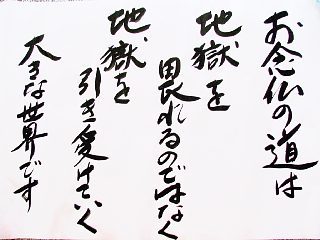 お念仏の道は
地獄を
畏れるのではなく
地獄を
引き受けていく
大きな世界です